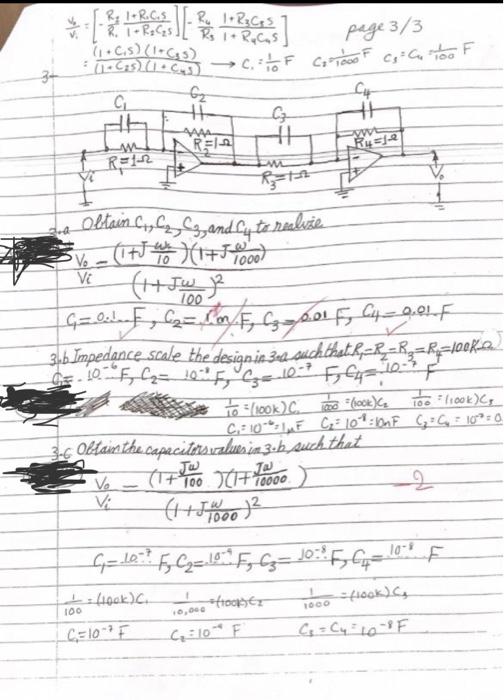 V₀/Vᵢ = [-R₂/R₁ (1+R₁C₁S)/(1+R₂C₂S)] [-R₄/R₃ (1+R₃C₃S)/(1+R₄C₄S)] page 3/3
= (1+C₁S)(1+C₃S)/(1+C₂S)(1+C₄S) → C₁=1/10 F C₂=1/1000 F C₃=C₄=1/100 F
3-
C₁ C₂ C₃ C₄
R₁=1Ω R₂=1Ω R₃=1Ω R₄=1Ω
Vi V₀
3-a Obtain C₁, C₂, C₃, and C₄ to realize
V₀/Vi = (1+Jω/10)(1+Jω/1000)/(1+Jω/100)²
C₁=0.1 F, C₂= 1m F, C₃=0.01 F, C₄=0.01 F
3-b Impedance scale the design in 3-a such that R₁=R₂=R₃=R₄=100KΩ
C₁= 10⁻⁶ F, C₂= 10⁻⁸ F, C₃= 10⁻⁷ F, C₄= 10⁻⁷ F
1/10=(100k)C₁ 1/1000=(100k)C₂ 1/100=(100k)C₃
C₁=10⁻⁶=1μF C₂=10⁻⁸=10nF C₃=C₄=10⁻⁷=0
3-c Obtain the capacitors values in 3-b, such that
V₀/Vi = (1+Jω/100)(1+Jω/10000)/(1+Jω/1000)² -2
C₁=10⁻⁷ F, C₂=10⁻⁹ F, C₃=10⁻⁸ F, C₄=10⁻⁸ F
1/100=(100k)C₁ 1/10,000=(100k)C₂ 1/1000=(100k)C₃
C₁=10⁻⁷ F C₂=10⁻⁹ F C₃=C₄=10⁻⁸F